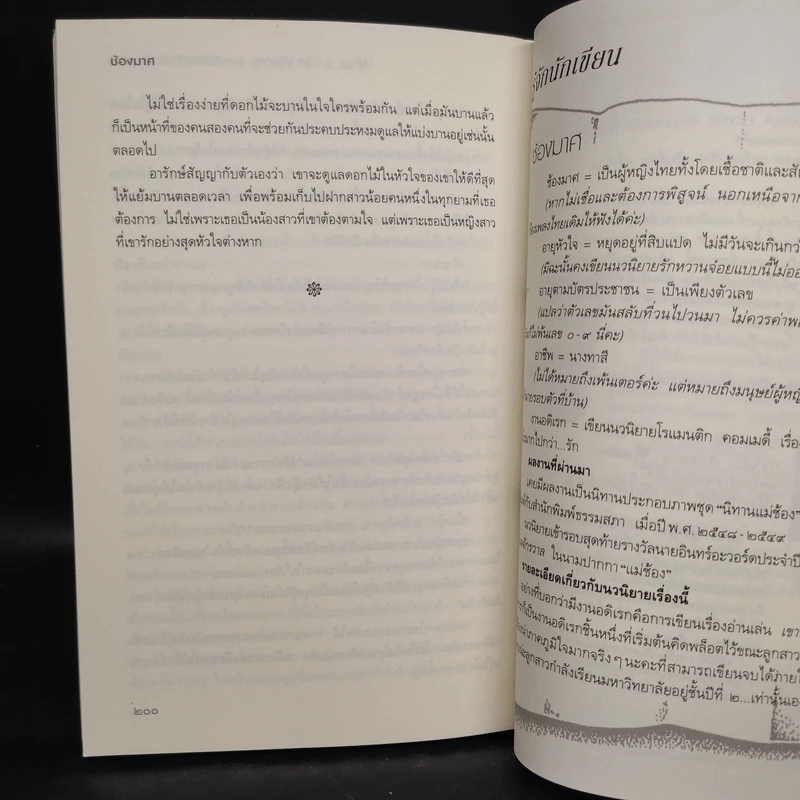 ช้องมาศ
ไม่ใช่เรื่องง่ายที่ดอกไม้จะบานในใจใครพร้อมกัน แต่เมื่อมันบานแล้ว
ก็เป็นหน้าที่ของคนสองคนที่จะช่วยกันประคบประหงมดูแลให้แบ่งบานอยู่เช่นนั้น
ตลอดไป
อารักษ์สัญญากับตัวเองว่า เขาจะดูแลดอกไม้ในหัวใจของเขาให้ดีที่สุด
ให้แย้มบานตลอดเวลา เพื่อพร้อมเก็บไปฝากสาวน้อยคนหนึ่งในทุกยามที่เธอ
ต้องการ ไม่ใช่เพราะเธอเป็นน้องสาวที่เขาต้องตามใจ แต่เพราะเธอเป็นหญิงสาว
ที่เขารักอย่างสุดหัวใจต่างหาก
๒๐๐
รู้จักนักเขียน
ช้องมาศ
ช้องมาศ = เป็นผู้หญิงไทยทั้งโดยเชื้อชาติและสัญ
(หากไม่เชื่อและต้องการพิสูจน์ นอกเหนือจาก
ร้องเพลงไทยเดิมให้ฟังได้ค่ะ)
อายุหัวใจ = หยุดอยู่ที่สิบแปด ไม่มีวันจะเกินกว่
(มิฉะนั้นคงเขียนนวนิยายรักหวานจ๋อยแบบนี้ไม่ออ
อายุตามบัตรประชาชน = เป็นเพียงตัวเลข
(แปลว่าตัวเลขมันสลับที่วนไปวนมา ไม่ควรค่าพ
ไม่พ้นเลข ๐-๙ นี่คะ)
อาชีพ = นางทาสี
(ไม่ได้หมายถึงเพ้นเตอร์ค่ะ แต่หมายถึงมนุษย์ผู้หญิ
รอบตัวที่บ้าน)
งานอดิเรก = เขียนนวนิยายโรแมนติก คอมเมดี้ เรื่อ
มากไปกว่า...รัก
ผลงานที่ผ่านมา
เคยมีผลงานเป็นนิทานประกอบภาพชุด “นิทานแม่ช้อง”
กับสำนักพิมพ์ธรรมสภา เมื่อปี พ.ศ. ๒๕๔๘-๒๕๔๙
นวนิยายเข้ารอบสุดท้ายรางวัลนายอินทร์อะวอร์ดประจำปี
ในนามปากกา “แม่ช้อง”
รายละเอียดเกี่ยวกับนวนิยายเรื่องนี้
อย่างที่บอกว่ามีงานอดิเรกคือการเขียนเรื่องอ่านเล่น เขา
ก็เป็นงานอดิเรกชิ้นหนึ่งที่เริ่มต้นคิดพล็อตไว้ขณะลูกสาว
ภาคภูมิใจมากจริง ๆ นะคะที่สามารถเขียนจบได้ภายใ
ลูกสาวกำลังเรียนมหาวิทยาลัยอยู่ชั้นปีที่ ๒...เท่านั้นเอ